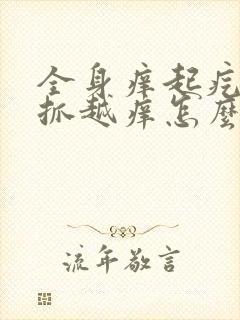 全身痒起疙
抓越痒怎麽
流年敬言